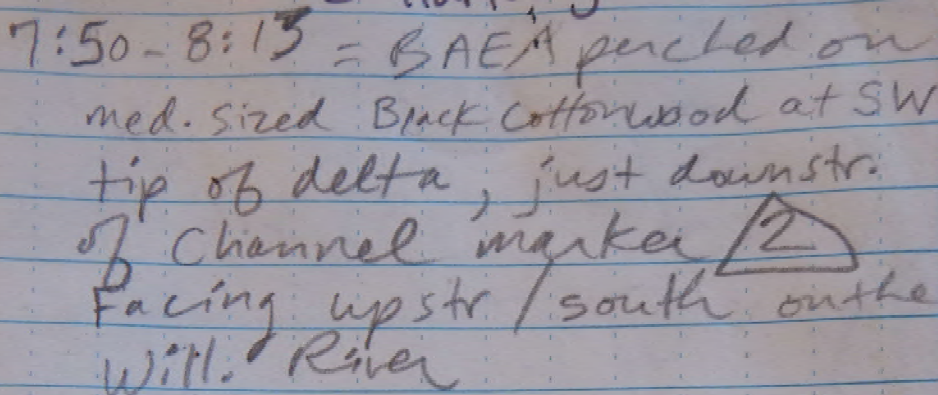 7:50-8:15 = BAEA perched on
med. sized Black Cottonwood at SW
tip of delta, just downstr.
of Channel marker 2
Facing upstr/south on the
Will. River